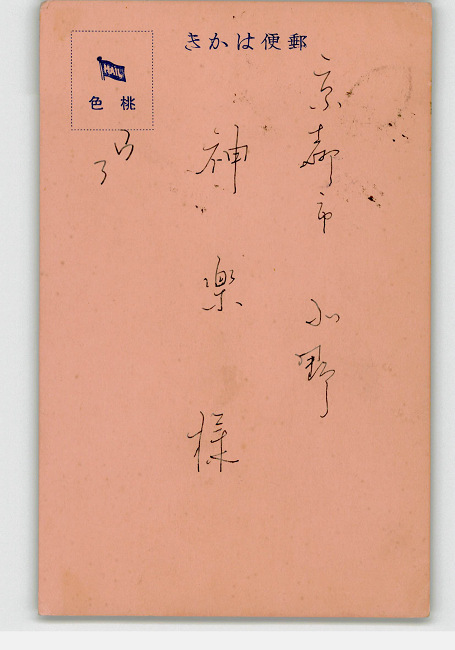 郵便はかき
MAIL
桃色
京都市
神楽様